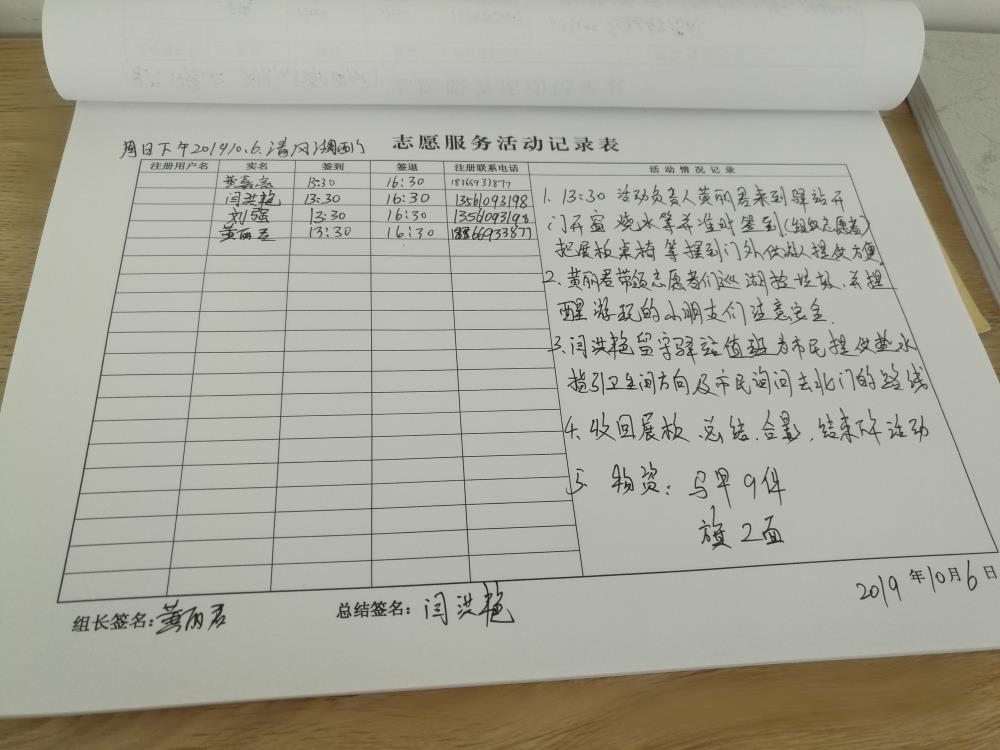 周日下午2019.10.6.清风湖西门
志愿服务活动记录表
注册用户名 实名 签到 签退 注册联系电话 活动情况记录
13:30 16:30 18366933877
闫洪艳 13:30 16:30 13561093198
刘强 13:30 16:30 13561093198
黄丽君 13:30 16:30 18366933877
1. 13:30 活动负责人黄丽君来到驿站开
门开窗 烧水等并准时签到(组织志愿者)
把展板桌椅等摆到门外供游人提供方便
2. 黄丽君带领志愿者们巡湖捡垃圾,并提
醒游玩的小朋友们注意安全.
3. 闫洪艳留守驿站值班为市民提供热水
指引卫生间方向及市民询问去北门的路线
4. 收回展板、总结、合影,结束下午活动
5. 物资: 马甲9件
旗2面
2019年10月6日
组长签名:黄丽君 总结签名:闫洪艳